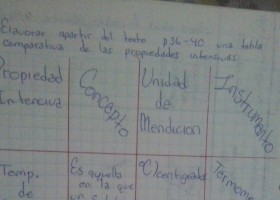 Elavorar apartir del texto p36-40 una tabla
comparativa de las propiedades intensivas.
Propiedad
Intenciva
Concepto
Unidad
de
Mendicion
Instrumento
Temp.
de
Es aquella
en la que
°C/centigrados